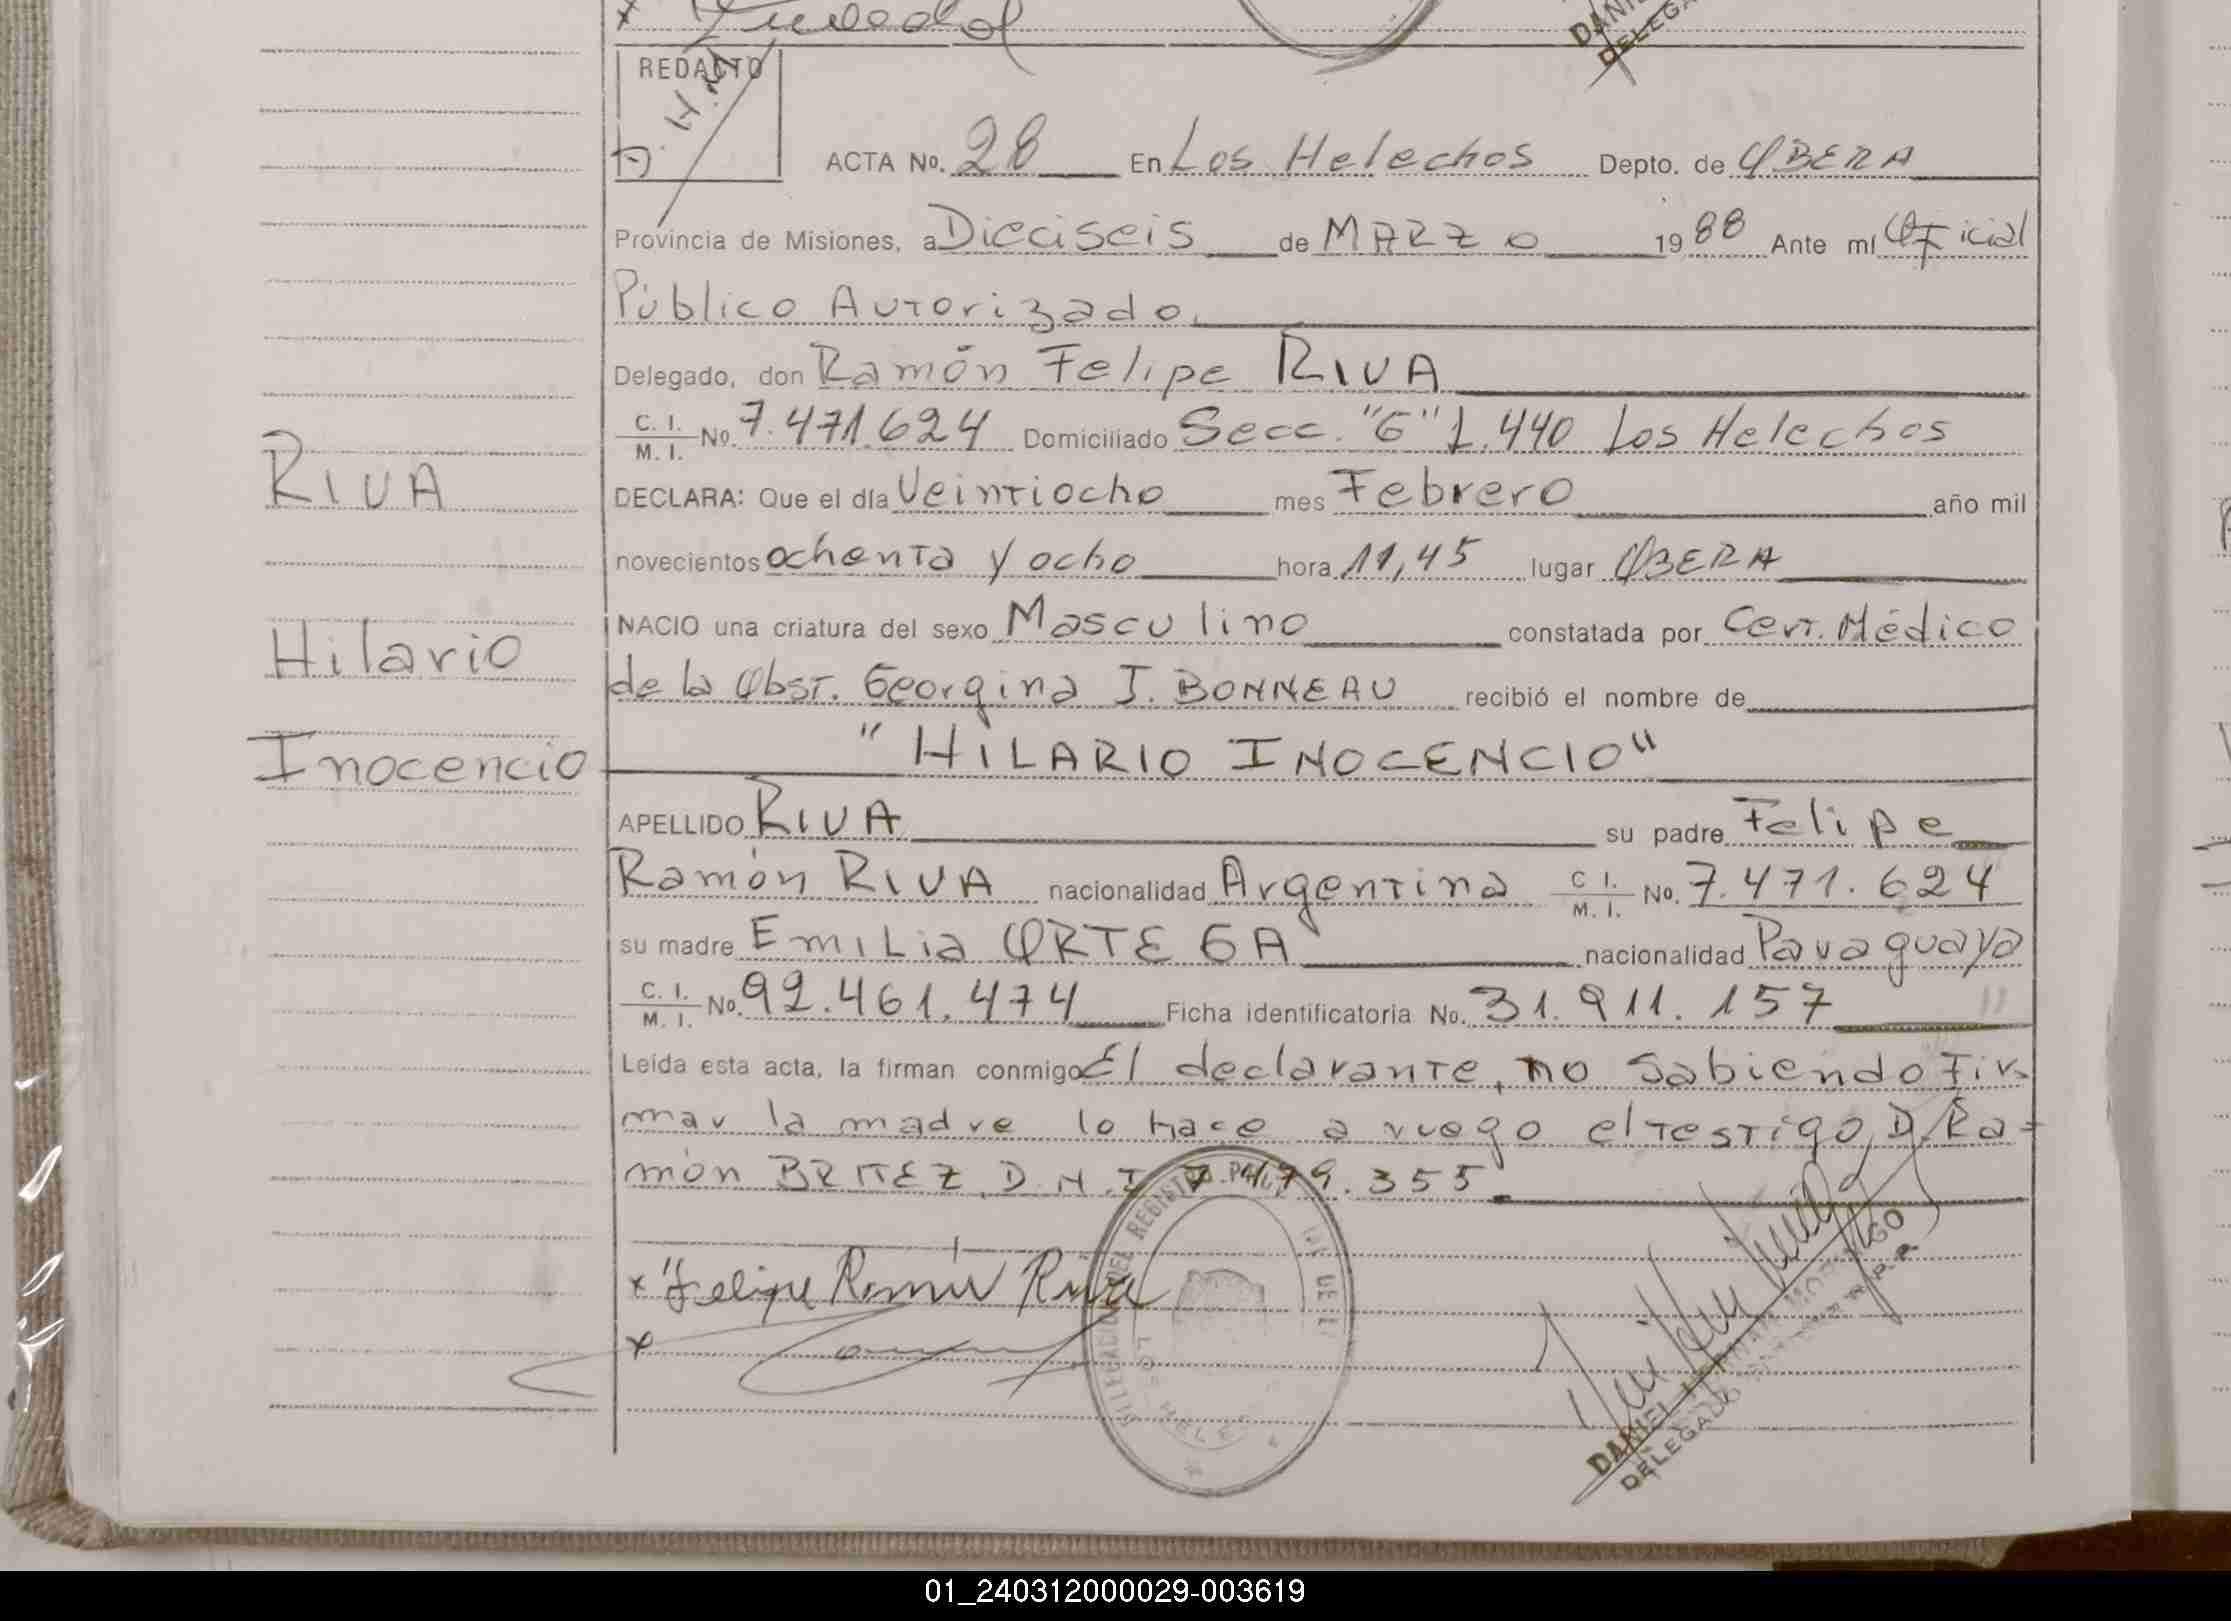 DELEGA
REDACTO
H.M
ACTA No. 28 En Los Helechos Depto. de OBERA
Provincia de Misiones, a Dieciseis de MARZO 1988 Ante mí Oficial
Público Autorizado.
Delegado, don Ramón Felipe RIVA
C. I. / M. I. No. 7.471.624 Domiciliado Secc. "G" L.440 Los Helechos
RIVA
DECLARA: Que el día Veintiocho mes Febrero año mil
novecientos ochenta y ocho hora 11,45 lugar OBERA
NACIO una criatura del sexo Masculino constatada por Cert. Médico
Hilario
de la Obst. Georgina J. BONNEAU recibió el nombre de
Inocencio
"HILARIO INOCENCIO"
APELLIDO RIVA su padre Felipe
Ramón RIVA nacionalidad Argentina C I. / M. I. No. 7.471.624
su madre Emilia ORTEGA nacionalidad Paraguaya
C. I. / M. I. No. 92.461.474 Ficha identificatoria No. 31.911.157
Leída esta acta, la firman conmigo El declarante, no sabiendo fir-
mar la madre lo hace a ruego el testigo D. Ra=
món BRITEZ, D.N.I 7.479.355
x Felipe Ramón Riva
x
DELEGACION DEL REGISTRO
LOS HELE
DANIEL
DELEGADO
01_240312000029-003619